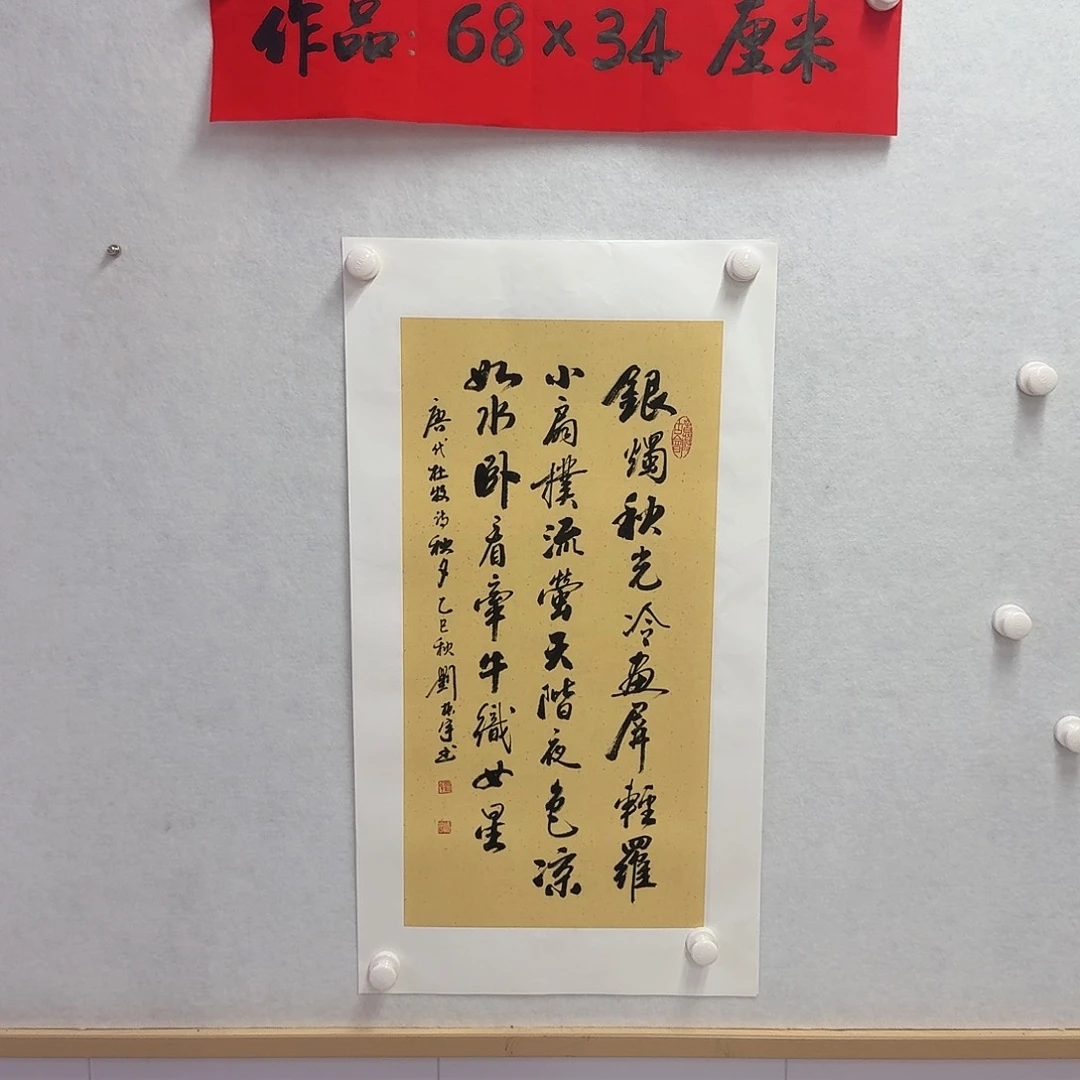 作品:68×34厘米
銀燭秋光冷畫屏輕羅
小扇撲流螢天階夜色涼
如水卧看牽牛織女星
唐代杜牧詩秋夕乙巳秋劉